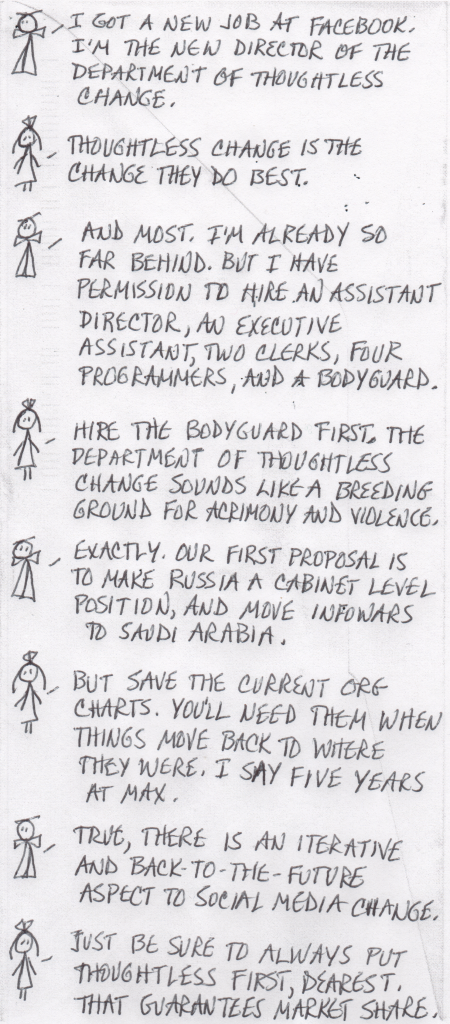 I GOT A NEW JOB AT FACEBOOK.
I'M THE NEW DIRECTOR OF THE
DEPARTMENT OF THOUGHTLESS
CHANGE.
THOUGHTLESS CHANGE IS THE
CHANGE THEY DO BEST.
AND MOST. I'M ALREADY SO
FAR BEHIND. BUT I HAVE
PERMISSION TO HIRE AN ASSISTANT
DIRECTOR, AN EXECUTIVE
ASSISTANT, TWO CLERKS, FOUR
PROGRAMMERS, AND A BODYGUARD.
HIRE THE BODYGUARD FIRST. THE
DEPARTMENT OF THOUGHTLESS
CHANGE SOUNDS LIKE A BREEDING
GROUND FOR ACRIMONY AND VIOLENCE.
EXACTLY. OUR FIRST PROPOSAL IS
TO MAKE RUSSIA A CABINET LEVEL
POSITION, AND MOVE INFOWARS
TO SAUDI ARABIA.
BUT SAVE THE CURRENT ORG
CHARTS. YOU'LL NEED THEM WHEN
THINGS MOVE BACK TO WHERE
THEY WERE. I SAY FIVE YEARS
AT MAX.
TRUE, THERE IS AN ITERATIVE
AND BACK-TO-THE-FUTURE
ASPECT TO SOCIAL MEDIA CHANGE.
JUST BE SURE TO ALWAYS PUT
THOUGHTLESS FIRST, DEAREST.
THAT GUARANTEES MARKET SHARE.